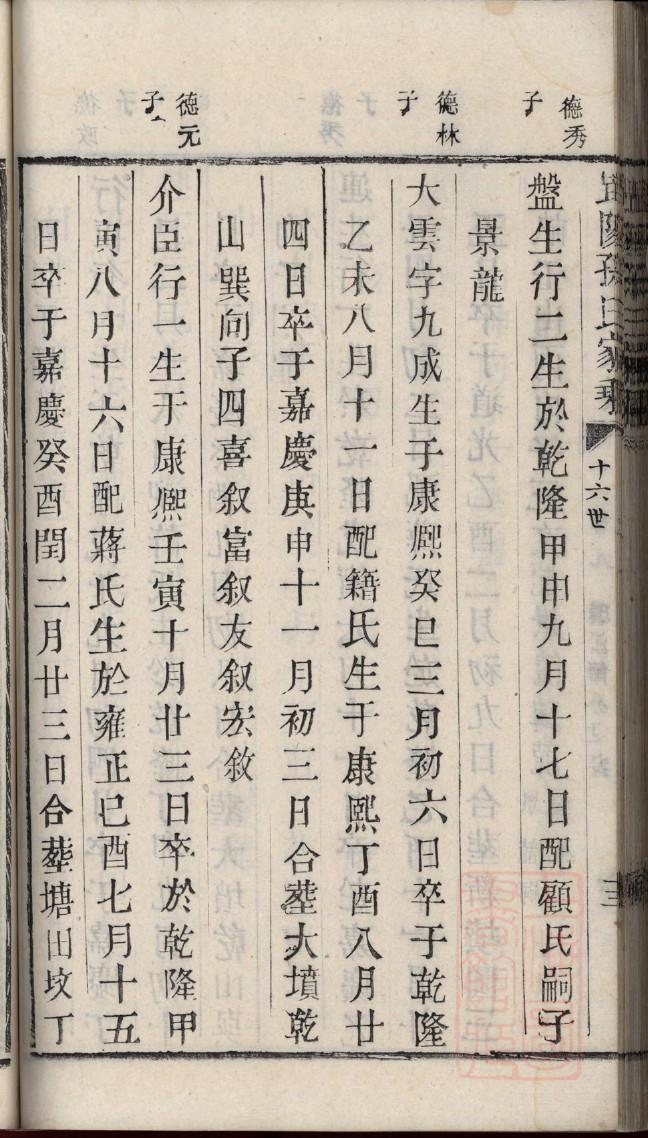 孫氏家乘
十六世
三
德秀
子
盤生行二生於乾隆甲申九月十七日配顧氏嗣子
景龍
德林
子
大雲字九成生于康熙癸巳三月初六日卒于乾隆
乙未八月十一日配籍氏生于康熙丁酉八月廿
四日卒于嘉慶庚申十一月初三日合塟大墳乾
山巽向子四喜叙富叙友叙宏敘
德元
子一
介臣行一生于康熙壬寅十月廿三日卒於乾隆甲
寅八月十六日配蔣氏生於雍正己酉七月十五
日卒于嘉慶癸酉閏二月廿三日合塟塘田坟丁